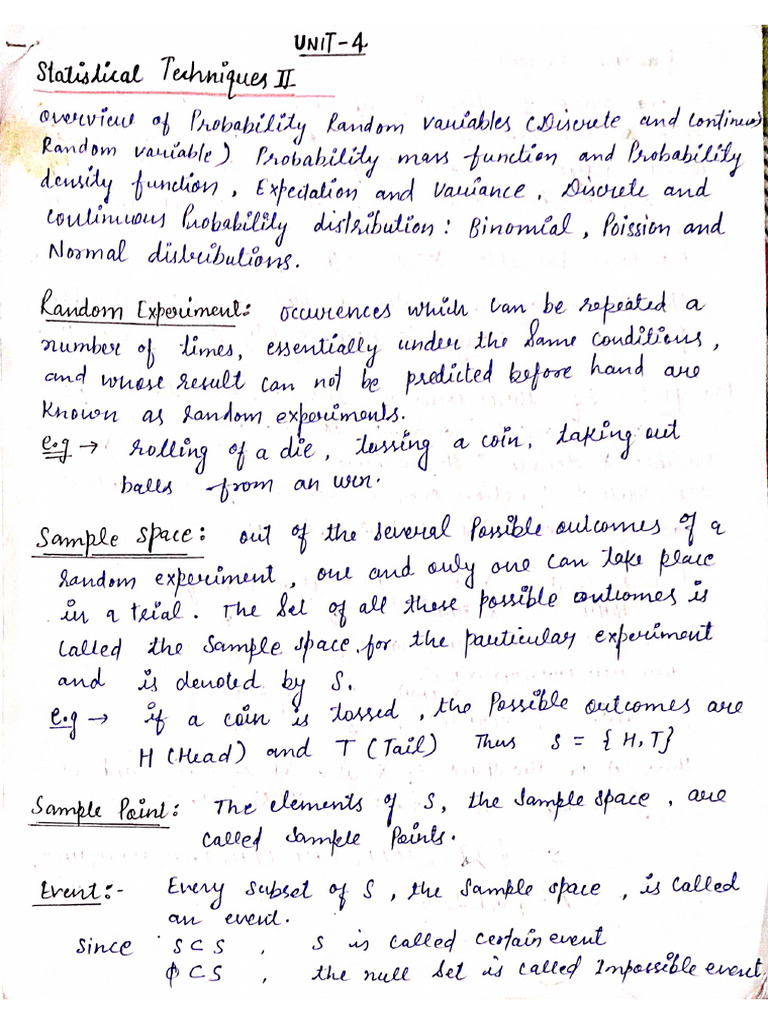 UNIT-4
Statistical Techniques II
Overview of Probability Random variables (Discrete and continuous
Random variable) Probability mass function and Probability
density function, Expectation and Variance, Discrete and
continuous Probability distribution: Binomial, Poission and
Normal distributions.
Random Experiment: occurences which can be repeated a
number of times, essentially under the same conditions,
and whose result can not be predicted before hand are
known as random experiments.
e.g → rolling of a die, tossing a coin, taking out
balls from an urn.
Sample Space: out of the several Possible outcomes of a
random experiment, one and only one can take place
in a trial. The Set of all these possible outcomes is
called the sample space for the particular experiment
and is denoted by S.
e.g → if a coin is tossed, the Possible outcomes are
H (Head) and T (Tail) Thus S = { H, T}
Sample Point: The elements of S, the sample space, are
called sample Points.
Event:- Every subset of S, the sample space, is called
an event.
Since S ⊂ S, S is called certain event
ϕ ⊂ S, the null set is called Impossible event